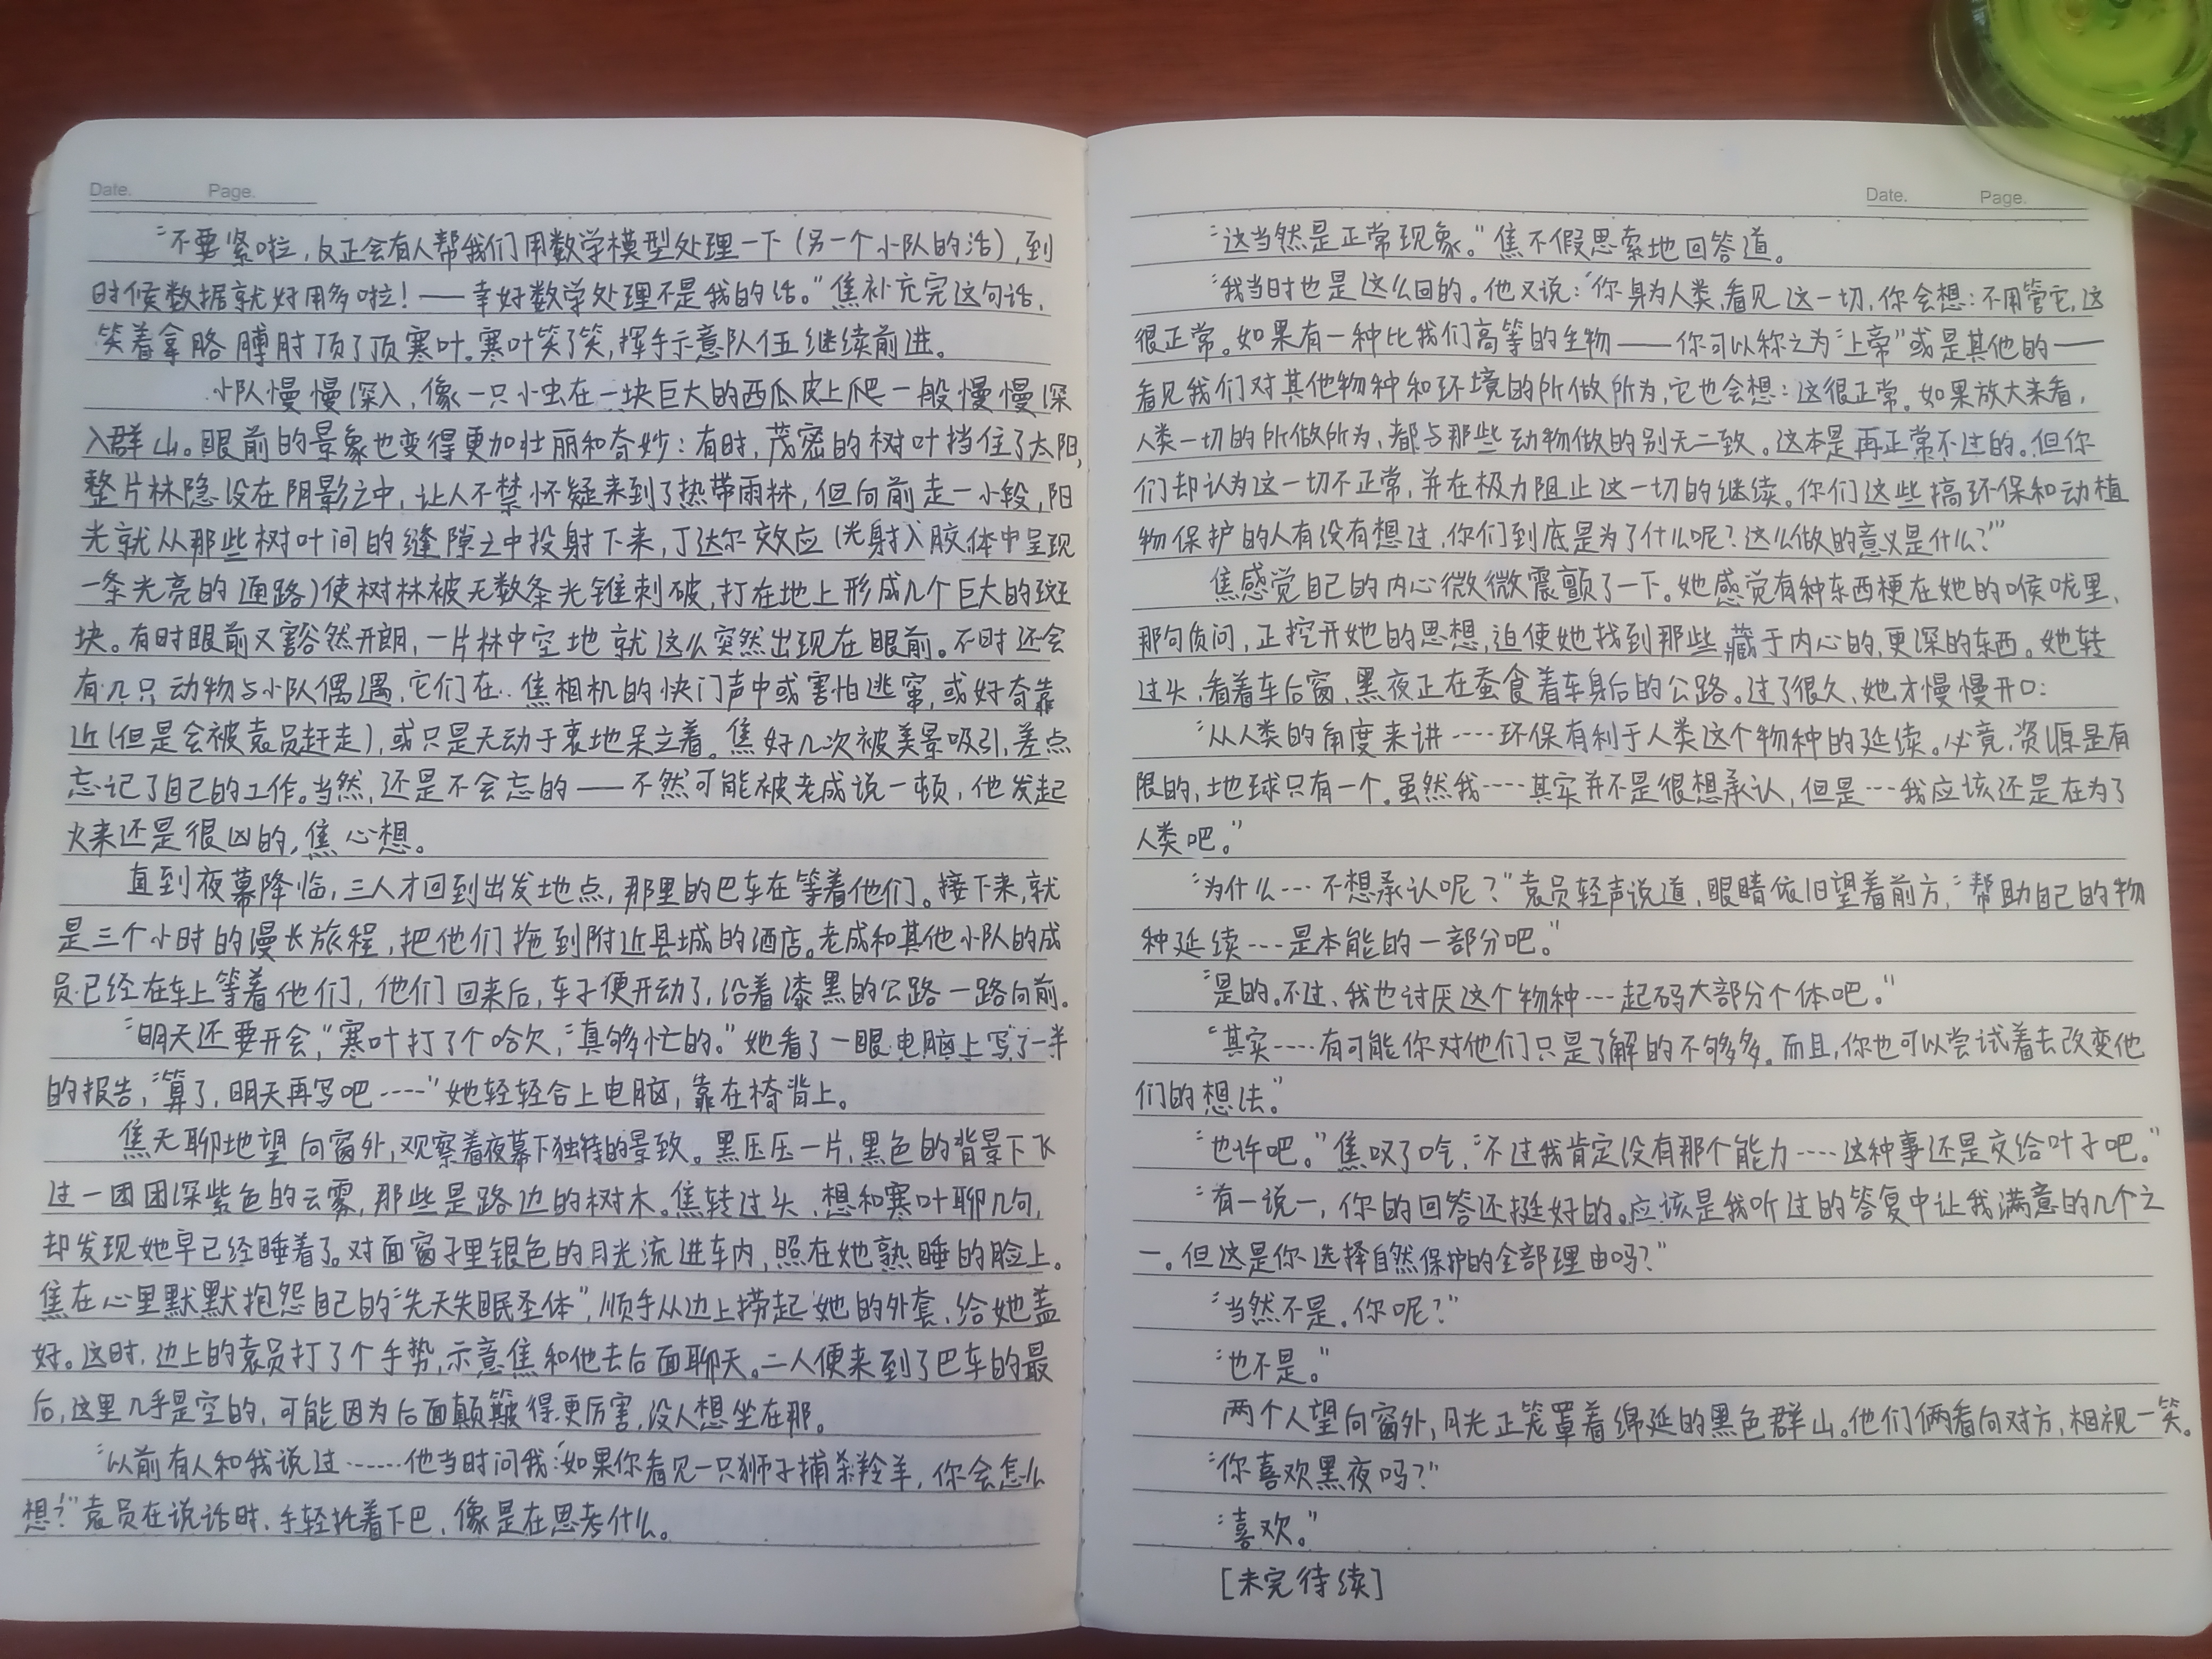 Date. Page.
“不要紧啦，反正会有人帮我们用数学模型处理一下（另一个小队的活），到
时候数据就好用多啦！——幸好数学处理不是我的活。”焦补充完这句话，
笑着拿胳膊肘顶了顶寒叶。寒叶笑了笑，挥手示意队伍继续前进。
小队慢慢深入，像一只小虫在一块巨大的西瓜皮上爬一般慢慢深
入群山。眼前的景象也变得更加壮丽和奇妙：有时，茂密的树叶挡住了太阳，
整片林隐没在阴影之中，让人不禁怀疑来到了热带雨林，但向前走一小段，阳
光就从那些树叶间的缝隙之中投射下来，丁达尔效应（光射入胶体中呈现
一条光亮的通路）使树林被无数条光锥刺破，打在地上形成几个巨大的斑
块。有时眼前又豁然开朗，一片林中空地就这么突然出现在眼前。不时还会
有几只动物与小队偶遇，它们在焦相机的快门声中或害怕逃窜，或好奇靠
近（但是会被袁员赶走），或只是无动于衷地呆立着。焦好几次被美景吸引，差点
忘记了自己的工作。当然，还是不会忘的——不然可能被老成说一顿，他发起
火来还是很凶的，焦心想。
直到夜幕降临，三人才回到出发地点，那里的巴车在等着他们。接下来，就
是三个小时的漫长旅程，把他们拖到附近县城的酒店。老成和其他小队的成
员已经在车上等着他们，他们回来后，车子便开动了，沿着漆黑的公路一路向前。
“明天还要开会，“寒叶打了个哈欠，“真够忙的。”她看了一眼电脑上写了一半
的报告，“算了，明天再写吧····”她轻轻合上电脑，靠在椅背上。
焦无聊地望向窗外，观察着夜幕下独特的景致。黑压压一片，黑色的背景下飞
过一团团深紫色的云雾，那些是路边的树木。焦转过头，想和寒叶聊几句，
却发现她早已经睡着了。对面窗子里银色的月光流进车内，照在她熟睡的脸上。
焦在心里默默抱怨自己的“先天失眠圣体”，顺手从边上捞起她的外套，给她盖
好。这时，边上的袁员打了个手势，示意焦和他去后面聊天。二人便来到了巴车的最
后，这里几乎是空的，可能因为后面颠簸得更厉害，没人想坐在那。
“以前有人和我说过······他当时问我：‘如果你看见一只狮子捕杀羚羊，你会怎么
想？’”袁员在说话时，手轻托着下巴，像是在思考什么。
Date. Page.
“这当然是正常现象。”焦不假思索地回答道。
“我当时也是这么回的。他又说：‘你身为人类，看见这一切，你会想：不用管它，这
很正常。如果有一种比我们高等的生物——你可以称之为“上帝”或是其他的——
看见我们对其他物种和环境的所做所为，它也会想：这很正常。如果放大来看，
人类一切的所做所为，都与那些动物做的别无二致。这本是再正常不过的。但你
们却认为这一切不正常，并在极力阻止这一切的继续。你们这些搞环保和动植
物保护的人有没有想过，你们到底是为了什么呢？这么做的意义是什么？’”
焦感觉自己的内心微微震颤了一下。她感觉有种东西梗在她的喉咙里，
那句质问，正挖开她的思想，迫使她找到那些藏于内心的，更深的东西。她转
过头，看着车后窗，黑夜正在蚕食着车身后的公路。过了很久，她才慢慢开口：
“从人类的角度来讲····环保有利于人类这个物种的延续。必竟，资源是有
限的，地球只有一个。虽然我····其实并不是很想承认，但是···我应该还是在为了
人类吧。”
“为什么···不想承认呢？”袁员轻声说道，眼睛依旧望着前方，“帮助自己的物
种延续···是本能的一部分吧。”
“是的。不过，我也讨厌这个物种···起码大部分个体吧。”
“其实····有可能你对他们只是了解的不够多。而且，你也可以尝试着去改变他
们的想法。”
“也许吧。”焦叹了口气，“不过我肯定没有那个能力····这种事还是交给叶子吧。”
“有一说一，你的回答还挺好的。应该是我听过的答复中让我满意的几个之
一。但这是你选择自然保护的全部理由吗？”
“当然不是。你呢？”
“也不是。”
两个人望向窗外，月光正笼罩着绵延的黑色群山。他们俩看向对方，相视一笑。
“你喜欢黑夜吗？”
“喜欢。”
[未完待续]